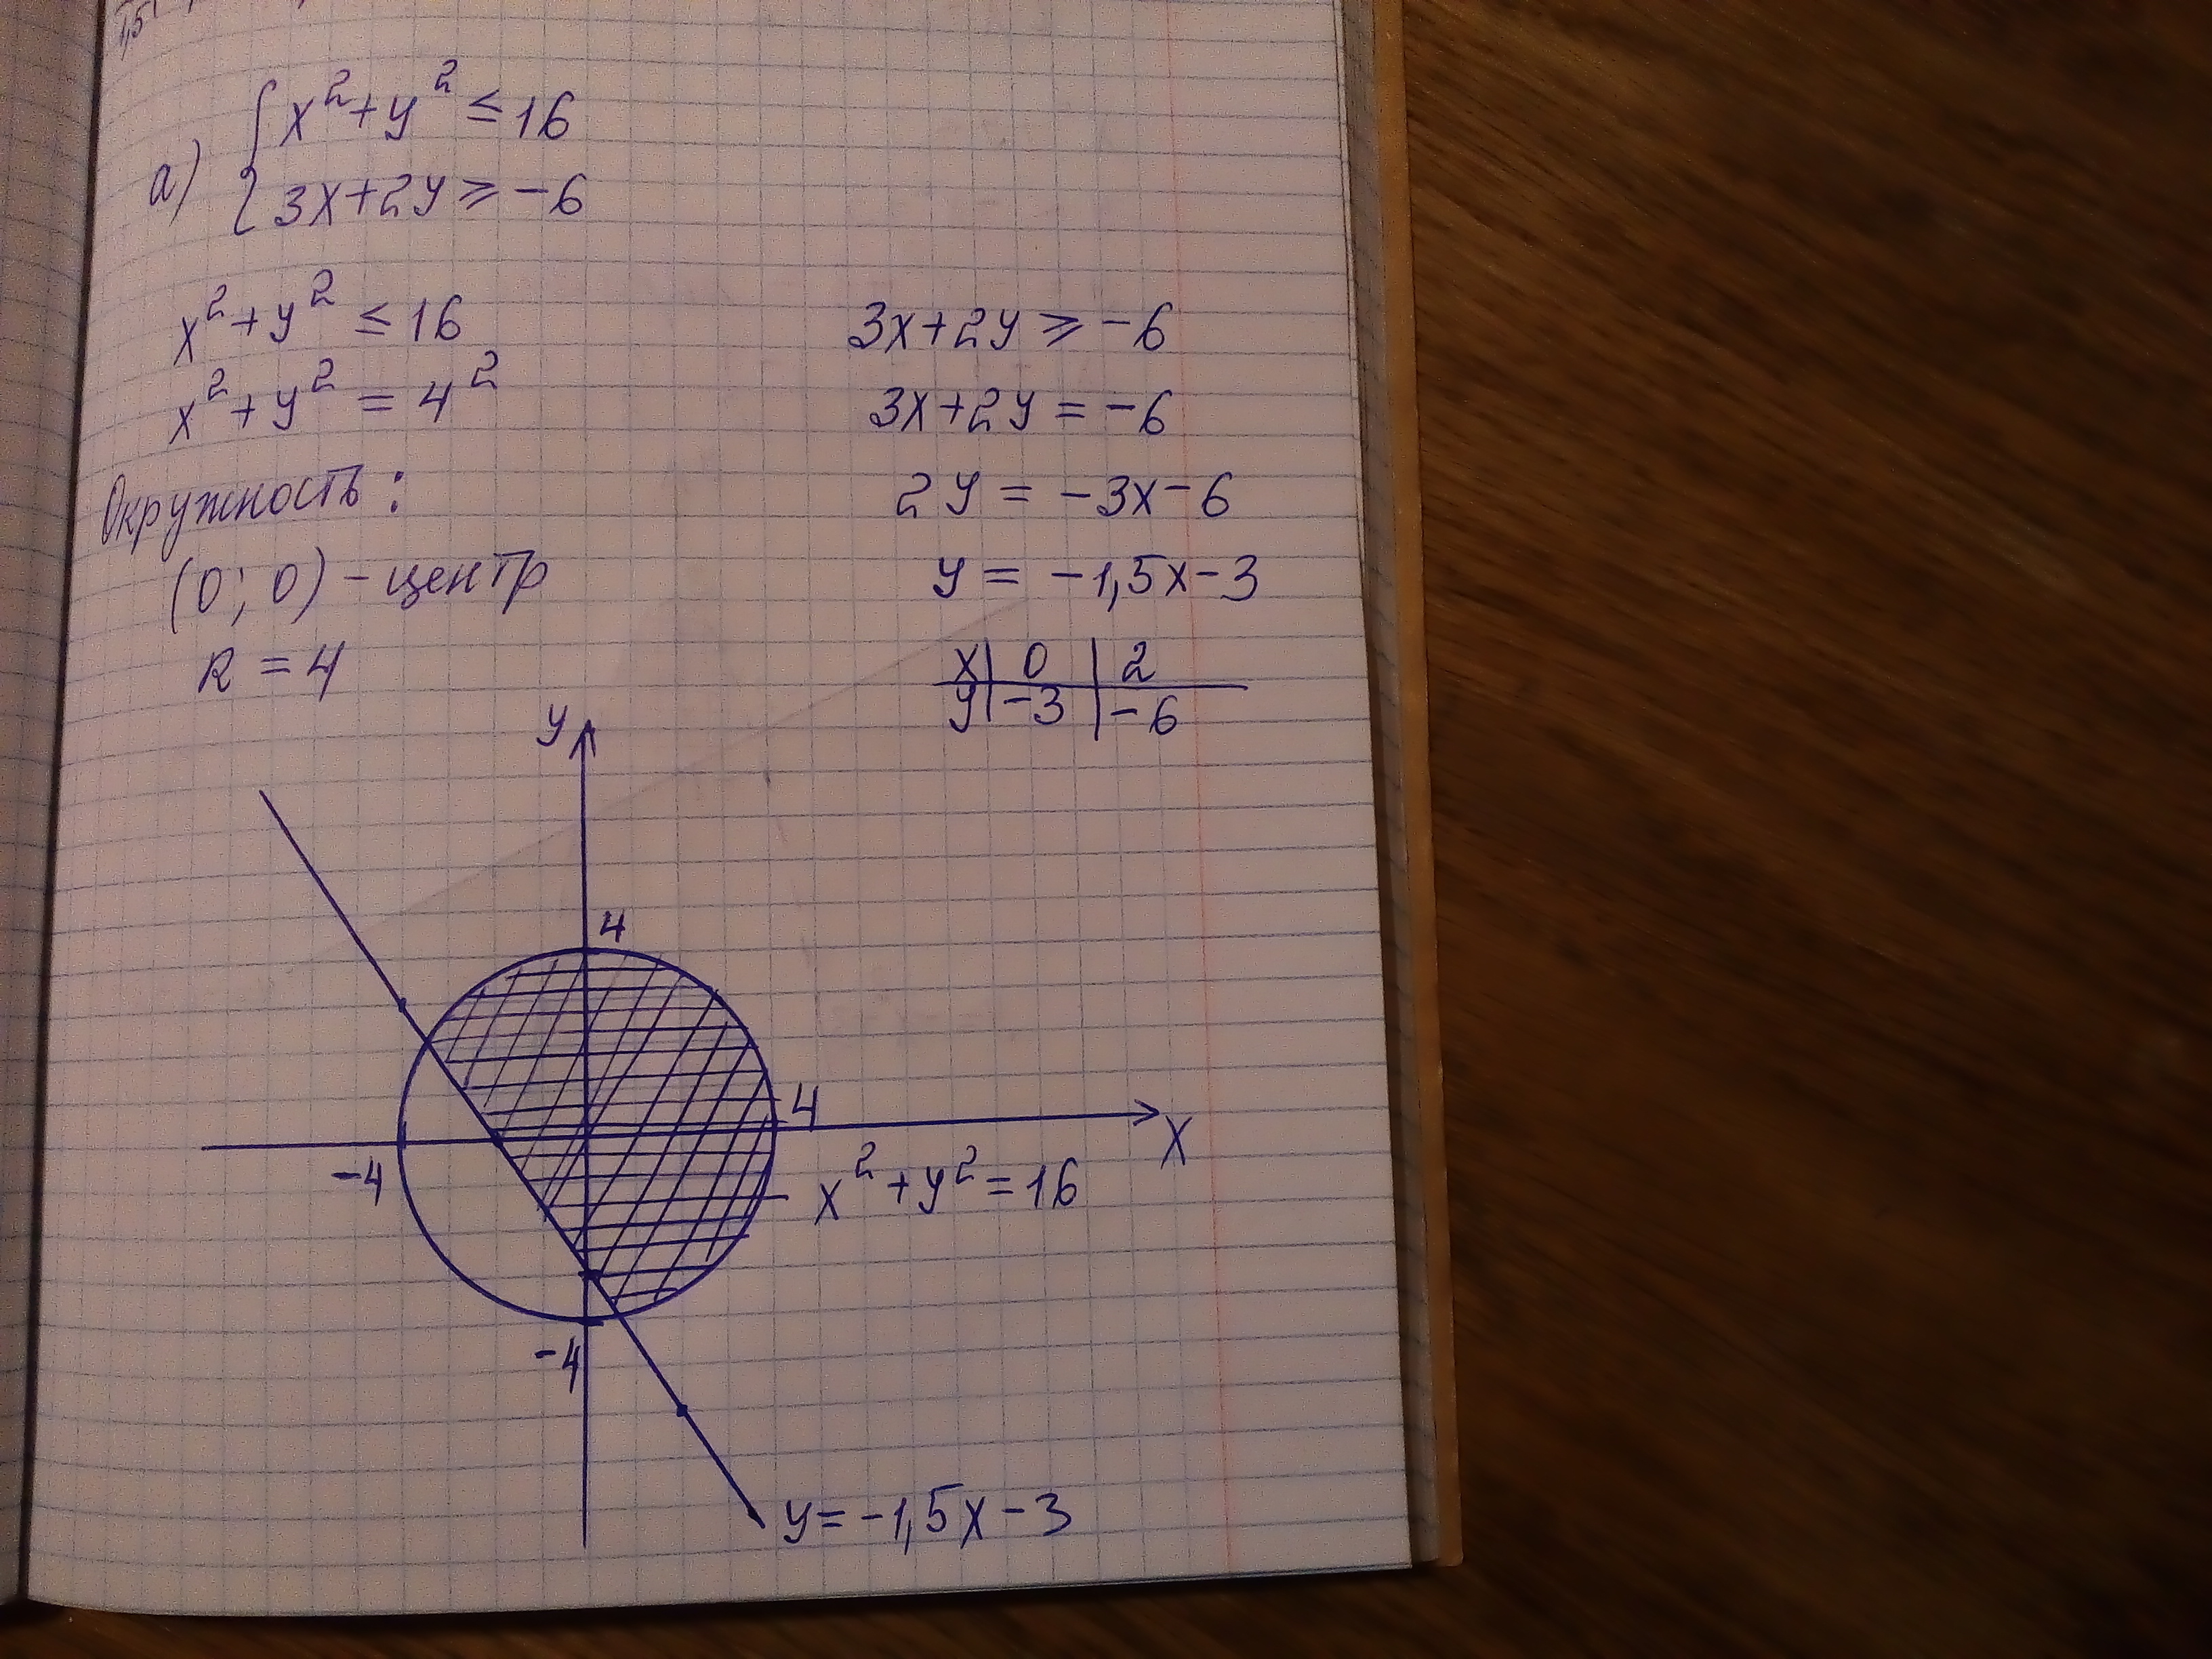 1,5
а) { x² + y² ≤ 16
3x + 2y ≥ -6
x² + y² ≤ 16
x² + y² = 4²
Окружность:
(0; 0) - центр
R = 4
3x + 2y ≥ -6
3x + 2y = -6
2y = -3x - 6
y = -1,5x - 3
x | 0 | 2
y | -3 | -6
y
4
4
x
-4
x² + y² = 16
-4
y = -1,5x - 3